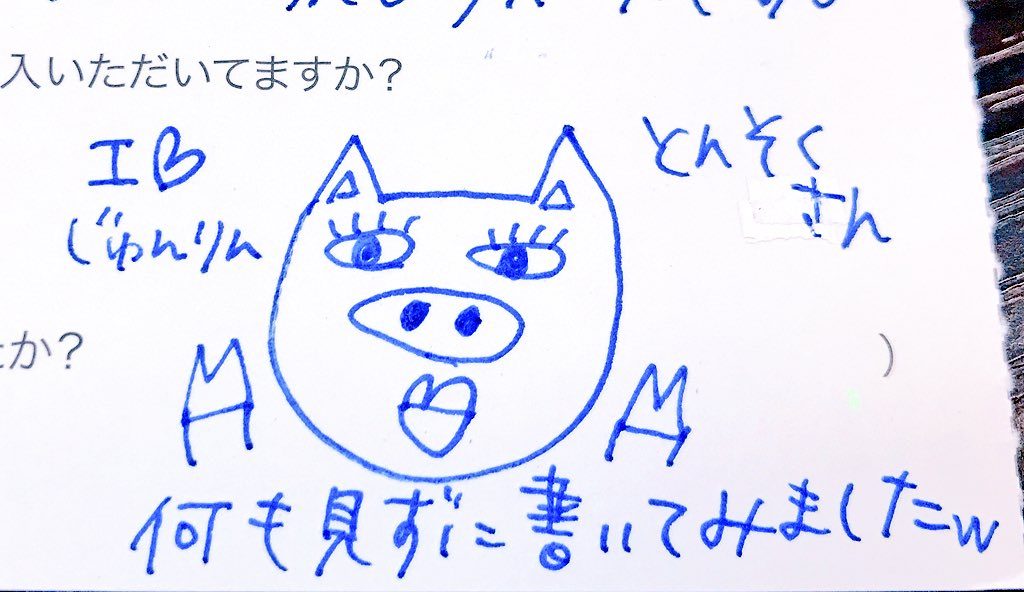 入いただいてますか?
I♡
じゅんりん
とんそく
さん
か?
)
何も見ずに書いてみましたw